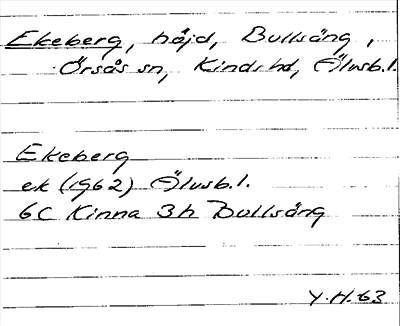 Ekeberg, höjd, Bullsäng,
Örsås sn, Kinds hd, Älvsb.l.
Ekeberg
ek (1962) Älvsb.l.
6C Kinna 3h Bullsäng
Y.H.63